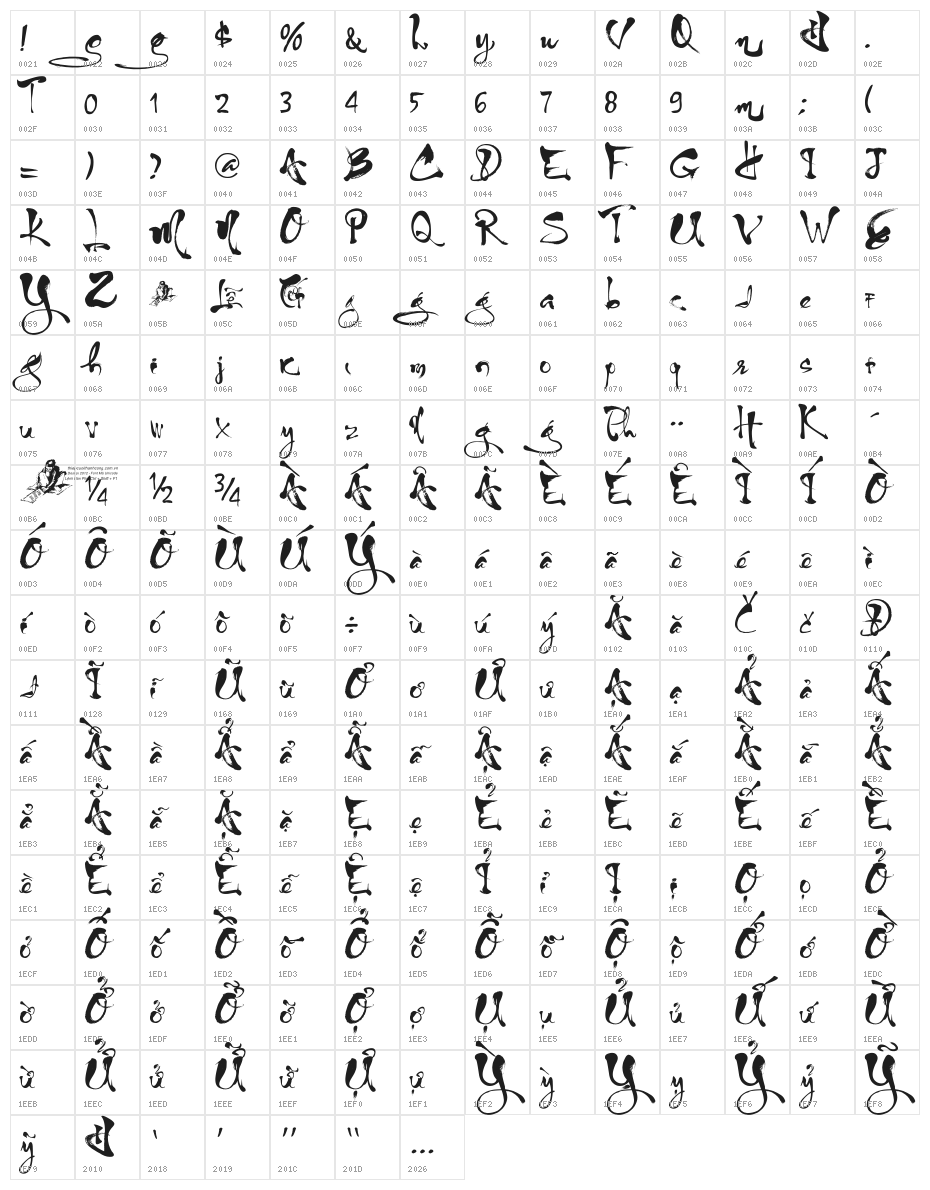 ! g g $ % & h y u V Q n H .
0021 0022 0023 0024 0025 0026 0027 0028 0029 002A 002B 002C 002D 002E
T 0 1 2 3 4 5 6 7 8 9 m ; (
002F 0030 0031 0032 0033 0034 0035 0036 0037 0038 0039 003A 003B 003C
= ) ? @ A B C D E F G H I J
003D 003E 003F 0040 0041 0042 0043 0044 0045 0046 0047 0048 0049 004A
K L M N O P Q R S T U V W X
004B 004C 004D 004E 004F 0050 0051 0052 0053 0054 0055 0056 0057 0058
Y Z g g g a b c d e f
0059 005A 005B 005C 005D 005E 005F 0060 0061 0062 0063 0064 0065 0066
g h i j k l m n o p q r s t
0067 0068 0069 006A 006B 006C 006D 006E 006F 0070 0071 0072 0073 0074
u v w x y z g g Th ¨ H K ´
0075 0076 0077 0078 0079 007A 007B 007C 007D 007E 00A8 00A9 00AE 00B4
¼ ½ ¾ À Á Â Ã È É Ê Ì Í Ò
00B6 00BC 00BD 00BE 00C0 00C1 00C2 00C3 00C8 00C9 00CA 00CC 00CD 00D2
Ó Ô Õ Ù Ú Ý à á â ã è é ê ì
00D3 00D4 00D5 00D9 00DA 00DD 00E0 00E1 00E2 00E3 00E8 00E9 00EA 00EC
í ò ó ô õ ÷ ù ú ý Ă ă Č č Đ
00ED 00F2 00F3 00F4 00F5 00F7 00F9 00FA 00FD 0102 0103 010C 010D 0110
đ Ĩ ĩ Ũ ũ Ơ ơ Ư ư Ạ ạ Ả ả Ấ
0111 0128 0129 0168 0169 01A0 01A1 01AF 01B0 1EA0 1EA1 1EA2 1EA3 1EA4
ấ Ầ ầ Ẩ ẩ Ẫ ẫ Ậ ậ Ắ ắ Ằ ằ Ẳ
1EA5 1EA6 1EA7 1EA8 1EA9 1EAA 1EAB 1EAC 1EAD 1EAE 1EAF 1EB0 1EB1 1EB2
ẳ Ẵ ẵ Ặ ặ Ẹ ẹ Ẻ ẻ Ẽ ẽ Ế ế Ề
1EB3 1EB4 1EB5 1EB6 1EB7 1EB8 1EB9 1EBA 1EBB 1EBC 1EBD 1EBE 1EBF 1EC0
ề Ể ể Ễ ễ Ệ ệ Ỉ ỉ Ị ị Ọ ọ Ỏ
1EC1 1EC2 1EC3 1EC4 1EC5 1EC6 1EC7 1EC8 1EC9 1ECA 1ECB 1ECC 1ECD 1ECE
ỏ Ố ố Ồ ồ Ổ ổ Ỗ ỗ Ộ ộ Ớ ớ Ờ
1ECF 1ED0 1ED1 1ED2 1ED3 1ED4 1ED5 1ED6 1ED7 1ED8 1ED9 1EDA 1EDB 1EDC
ờ Ở ở Ỡ ỡ Ợ ợ Ụ ụ Ủ ủ Ứ ứ Ừ
1EDD 1EDE 1EDF 1EE0 1EE1 1EE2 1EE3 1EE4 1EE5 1EE6 1EE7 1EE8 1EE9 1EEA
ừ Ử ử Ữ ữ Ự ự Ỳ ỳ Ỵ ỵ Ỷ ỷ Ỹ
1EEB 1EEC 1EED 1EEE 1EEF 1EF0 1EF1 1EF2 1EF3 1EF4 1EF5 1EF6 1EF7 1EF8
ỹ H ‘ ’ “ ” …
1EF9 2010 2018 2019 201C 201D 2026